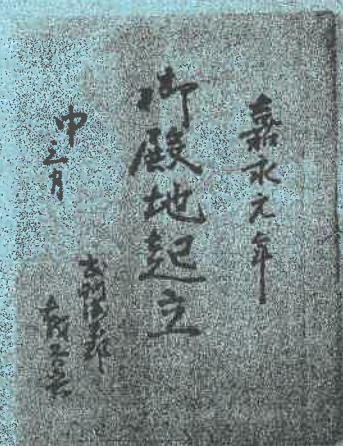 嘉永元年
御殿地起立
申三月